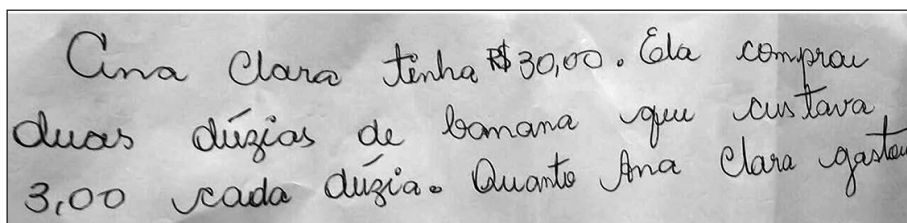 Ana Clara tinha R$ 30,00. Ela comprou
duas dúzias de banana que custava
3,00 cada dúzia. Quanto Ana Clara gastou